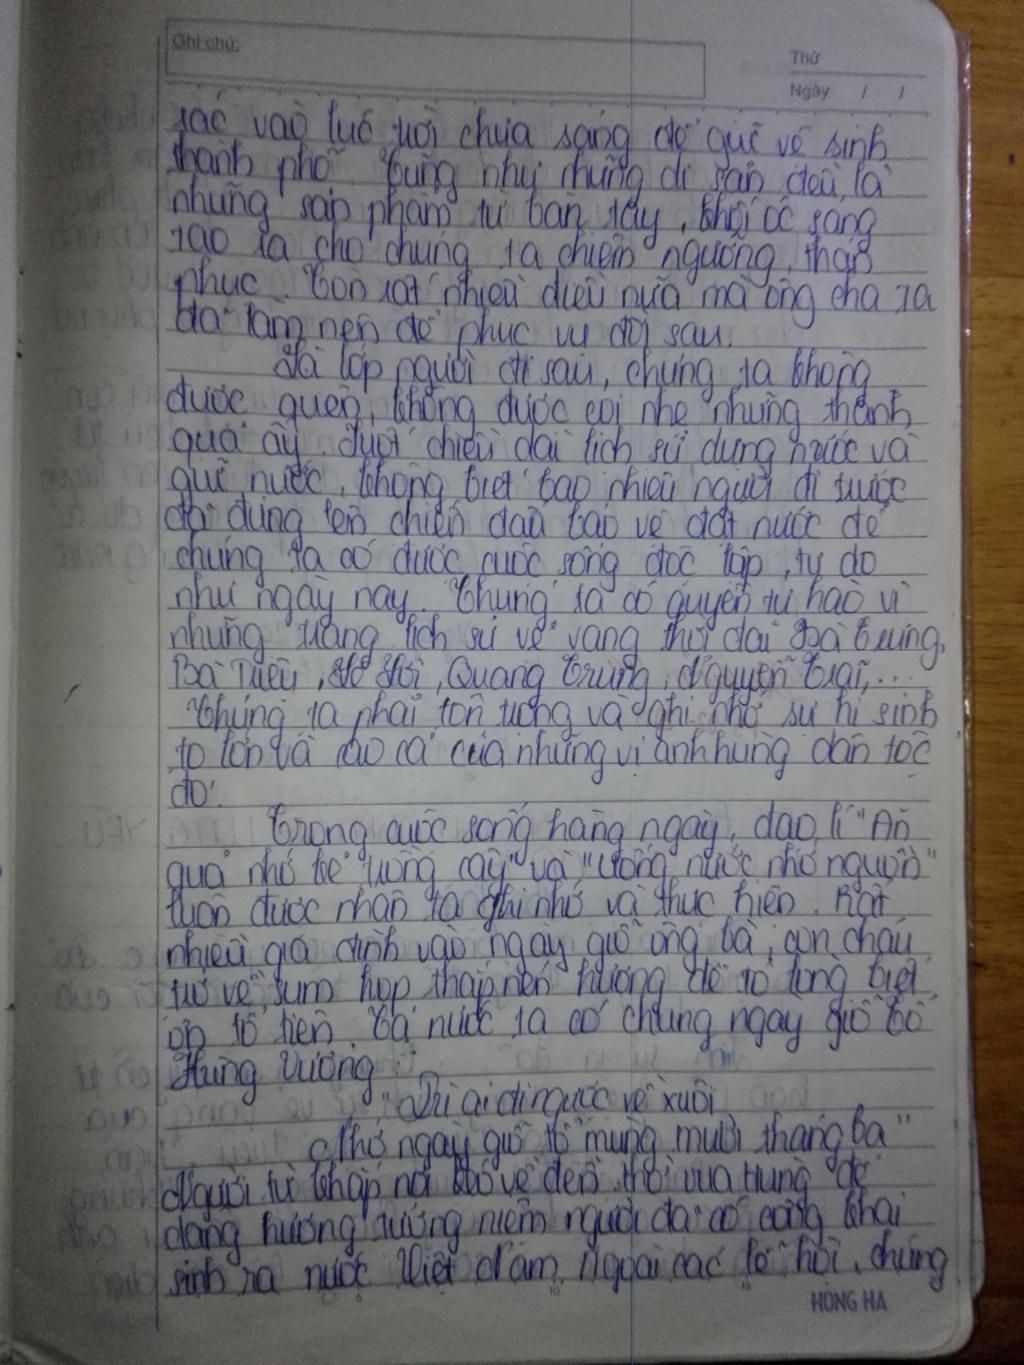 Ghi chú:
Thứ
Ngày / /
rác vào lúc trời chưa sáng để giữ vệ sinh
thành phố. Cũng như những di sản đều là
những sản phẩm từ bàn tay, khối óc sáng
tạo ra cho chúng ta chiêm ngưỡng, thán
phục. Còn rất nhiều điều nữa mà ông cha ta
đã làm nên để phục vụ đời sau.
Là lớp người đi sau, chúng ta không
được quên, không được coi nhẹ những thành
quả ấy. Suốt chiều dài lịch sử dựng nước và
giữ nước, không biết bao nhiêu người đi trước
đã đứng lên chiến đấu bảo vệ đất nước để
chúng ta có được cuộc sống độc lập, tự do
như ngày nay. Chúng ta có quyền tự hào vì
những trang lịch sử vẻ vang thời đại Bà Trưng,
Bà Triệu, Lê Lợi, Quang Trung, Nguyễn Trãi,...
Chúng ta phải tôn trọng và ghi nhớ sự hi sinh
to lớn và cao cả của những vị anh hùng dân tộc
đó.
Trong cuộc sống hàng ngày, đạo lí "Ăn
quả nhớ kẻ trồng cây" và "Uống nước nhớ nguồn"
luôn được nhân ta ghi nhớ và thực hiện. Rất
nhiều gia đình vào ngày giỗ ông bà, con cháu
tứ về sum họp thắp nén hương để tỏ lòng biết
ơn tổ tiên. Cả nước ta có chung ngày giỗ tổ
Hùng Vương
"Dù ai đi ngược về xuôi
Nhớ ngày giỗ tổ mùng mười tháng ba"
Người từ khắp nơi đổ về đền thờ vua Hùng để
dâng hương tưởng niệm người đã có công khai
sinh ra nước Việt Nam. Ngoài các lễ hội, chúng
HONG HA